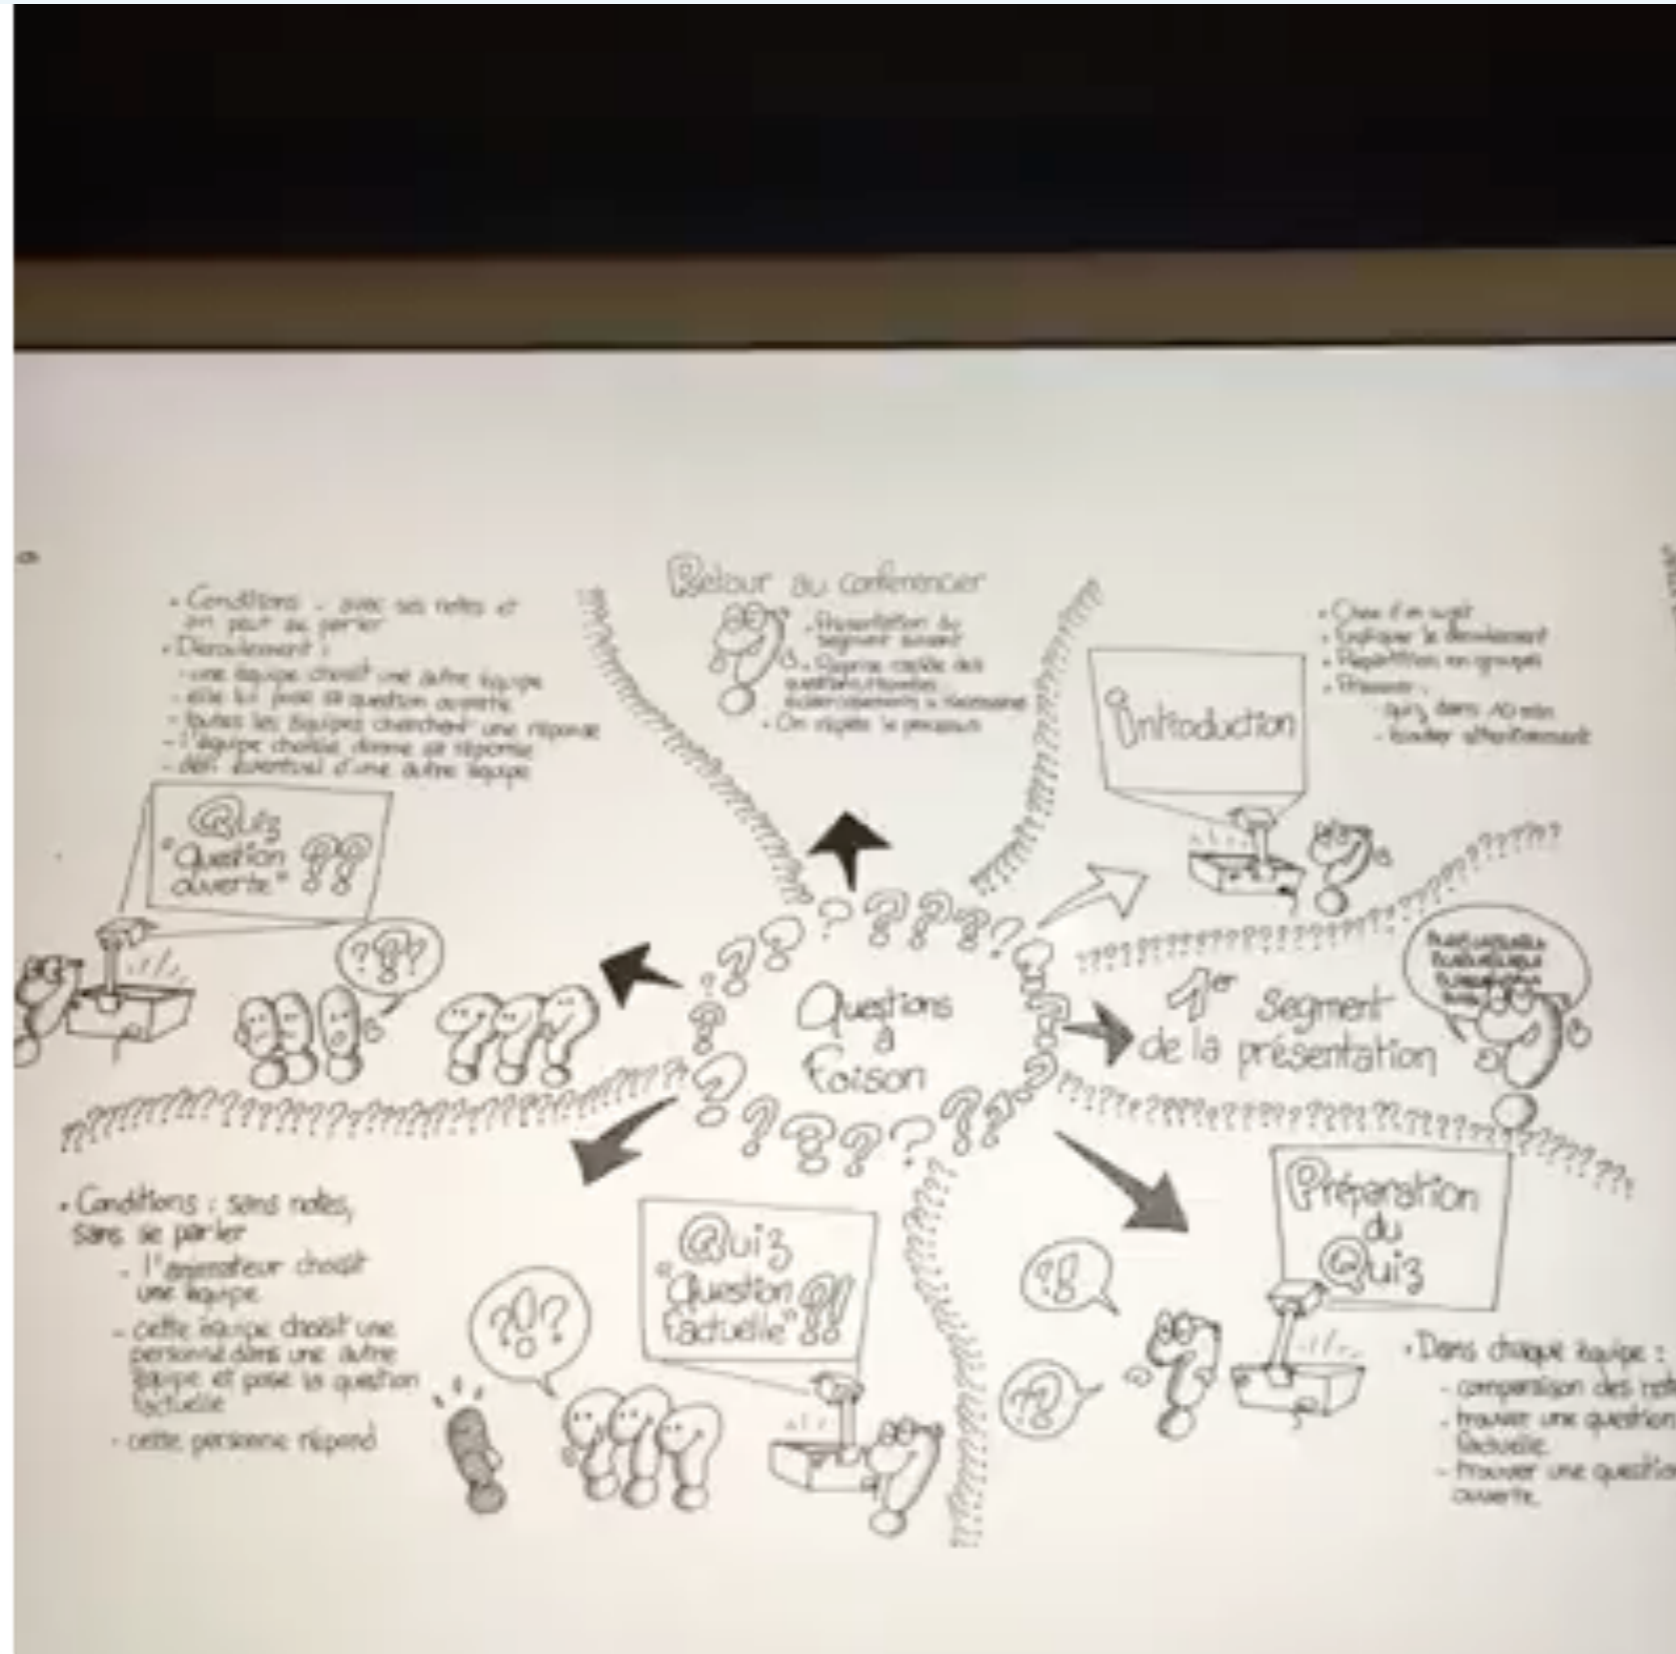 Questions
à
Foison
Introduction
• Choix d'un sujet
• Expliquer le déroulement
• Répartition en groupes
quiz dans 10 min
- écouter attentivement
1er segment
de la présentation
Préparation
du
Quiz
• Dans chaque équipe :
- comparaison des
- trouver une question
factuelle
- trouver une question
ouverte
Quiz
"Question
factuelle" ?!
• Conditions : sans notes,
sans se parler
- l'animateur choisit
une équipe
- cette équipe choisit une
personne dans une autre
équipe et pose la question
factuelle
- cette personne répond
Quiz
"Question
ouverte" ??
• Conditions : avec ses notes et
on peut se parler
• Déroulement :
- une équipe choisit une autre équipe
- elle lui pose sa question ouverte
- toutes les équipes cherchent une réponse
- l'équipe choisie donne sa réponse
- défi éventuel d'une autre équipe
Retour au conférencier
• Présentation du
segment suivant
• Reprise rapide des
questions
éclaircissements si nécessaire
• On répète le processus